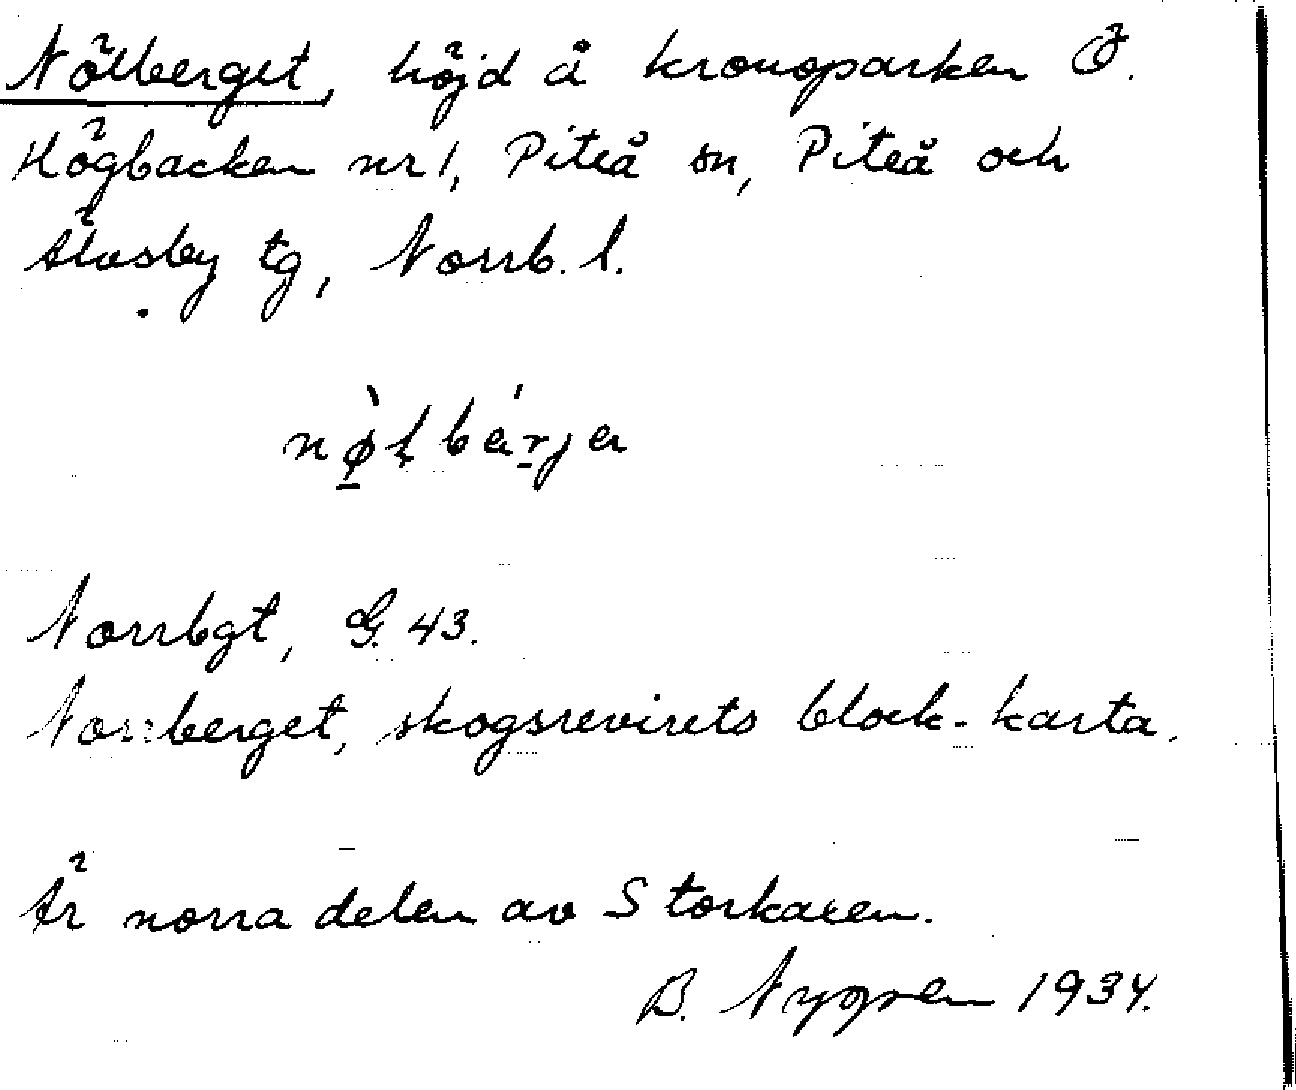 Nölberget, höjd å kronoparken Ö.
Högbacken nr 1, Piteå sn, Piteå och
Älvsby tg, Norrb. l.
Norrbgt, G. 43.
Norrberget, skogsrevirets block-karta.
Är norra delen av Storkaxen.
B. Nygren 1934.